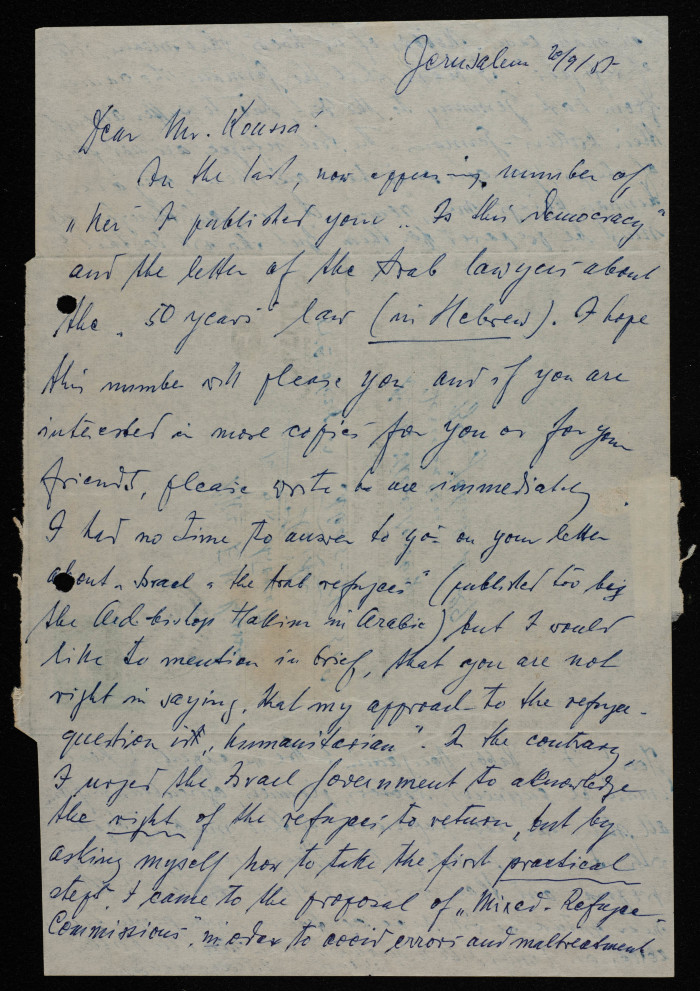 Jerusalem 20/9/5
Dear Mr. Koussa!
In the last, now appearing number of
„Ner" I published your „Is this Democracy"
and the letter of the Arab lawyers about
the „50 years law (in Hebrew). I hope
this number will please you and if you are
interested in more copies for you or for your
friends, please write to me immediately.
I had no time to answer to you on your letter
about „Israel + the Arab refugees" (published too by
the Archbishop Hakim in Arabic) but I would
like to mention in brief, that you are not
right in saying, that my approach to the refugee-
question is „humanitarian". In the contrary,
I urged the Israel Government to aknowledge
the right of the refugees to return, but by
asking myself how to take the first practical
steps, I came to the proposal of „Mixed-Refugee-
Commissions", in order to avoid errors and maltreatment